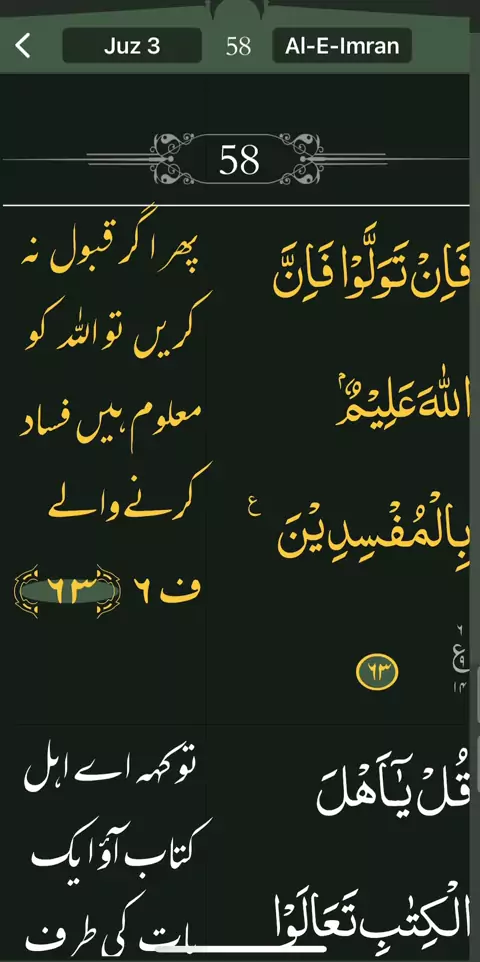 Juz 3 58 Al-E-Imran
58
فَاِنۡ تَوَلَّوۡا فَاِنَّ
اللّٰهَ عَلِيۡمٌۢ
بِالۡمُفۡسِدِيۡنَ ع
٦
ع
٩
١٤
٦٣
پھر اگر قبول نہ
کریں تو اللہ کو
معلوم ہیں فساد
کرنے والے
ف ٦ ٦٣
قُلۡ يٰۤاَهۡلَ
الۡكِتٰبِ تَعَالَوۡا
تو کہہ اے اہل
کتاب آؤ ایک
بات کی طرف